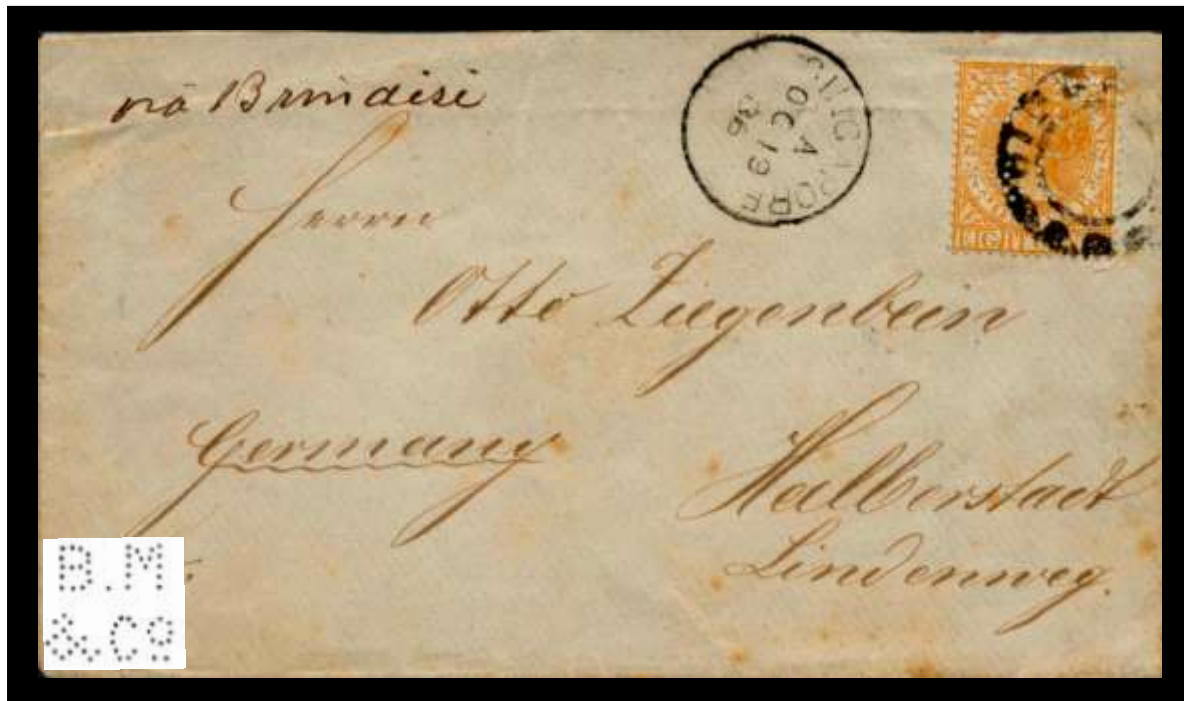 via Brindisi
SINGAPORE
A
OC 19
86
Herrn
Otto Ziegenbein
Germany
Halberstadt
Lindenweg.
B.M
&.Cº